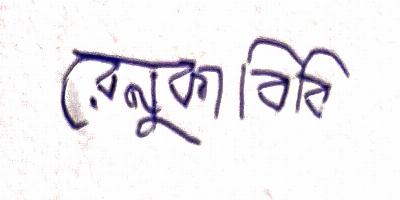 রেনুকা বিবি